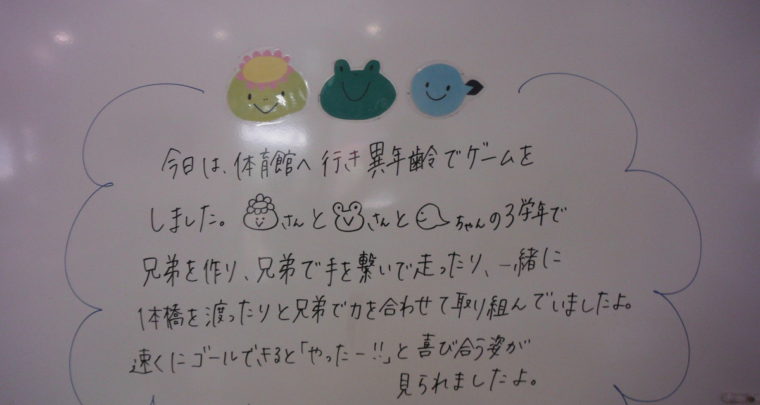 今日は、体育館へ行き異年齢でゲームを
しました。さんとさんとちゃんの3学年で
兄弟を作り、兄弟で手を繋いで走ったり、一緒に
1本橋を渡ったりと兄弟で力を合わせて取り組んでいましたよ。
速くにゴールできると「やったー!!」と喜び合う姿が
見られましたよ。